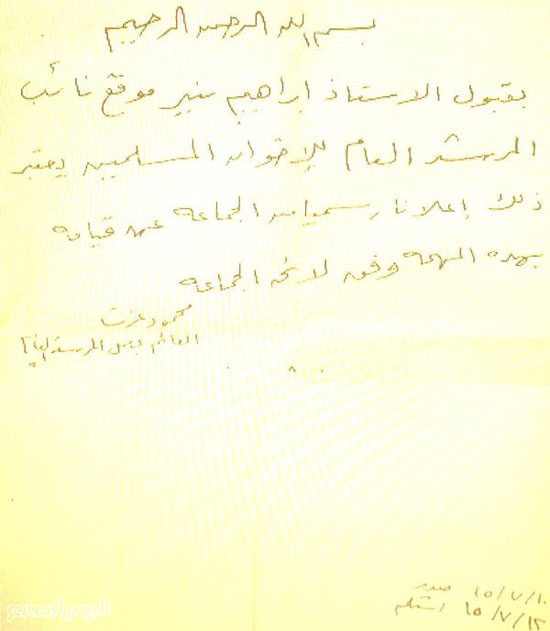 بسم الله الرحمن الرحيم
بقبول الاستاذ ابراهيم منير موقع نائب
المرشد العام للإخوان المسلمين يعتبر
ذلك إعلانا رسميا من الجماعة عن قيامه
بهذه المهمة وفق لائحة الجماعة
محمود عزت
القائم بعمل المرشد العام
صدر ١٥/٧/١٠
استلم ١٥/٧/١٢
اليوم السابع